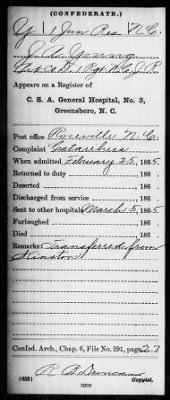 (CONFEDERATE.)
Y 1 Jun Res N. C.
J. A.
Appears on a Register of
C. S. A. General Hospital, No. 3,
Greensboro, N. C.
Post office N. C.
Complaint Catarrhus
When admitted February 25, 1865
Returned to duty , 186
Deserted , 186
Discharged from service , 186
Sent to other hospitals March 5, 1865
Furloughed , 186
Died , 186
Remarks Transferred from
Kinston
Confed. Arch., Chap. 6, File No. 291, page 27
R. B. Duncan
(635) Copyist.